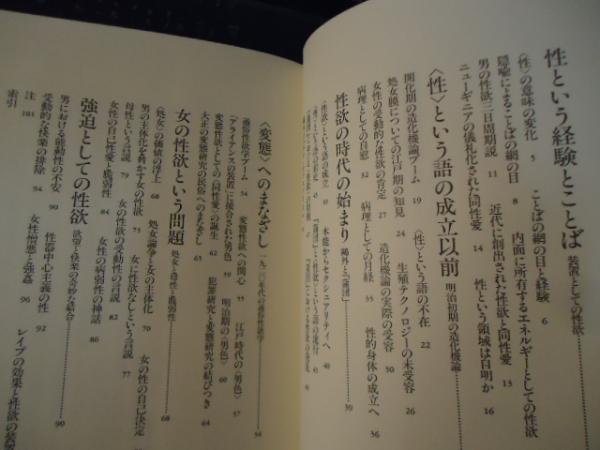 性という経験とことば 装置としての性欲
〈性〉の意味の変化 5 ことばの網の目と経験 6
隠喩によることばの網の目 8 内面に所有するエネルギーとしての性欲
男の性欲三日周期説 11 近代に創出された性欲と同性愛 13
ニューギニアの儀礼化された同性愛 14 性という領域は自明か 16
〈性〉という語の成立以前 明治初期の造化機論
開化期の造化機論ブーム 19 〈性〉という語の不在 22
処女膜についての江戸期の知見 24 生殖テクノロジーの未受容 26
女性の受動的な性欲の肯定 27 造化機論の実際の受容 30
病理としての自慰 32 病理としての月経 35 性的身体の成立へ 36
性欲の時代の始まり 鷗外と『蒲団』 39
〈性欲〉という語の成立 本能からセクシュアリティへ 40
〈変態〉へのまなざし 一九二〇年代の通俗性欲学 54
通俗性欲学ブーム 54 変態性欲への関心 55 江戸時代の〈男色〉 57
〈アライアンスの装置〉に接合された男色 59 明治期の〈男色〉 60
変態性欲としての〈同性愛〉の誕生 62 犯罪研究と変態研究の結びつき 64
大正の変態研究の民俗へのまなざし 65
女の性欲という問題 処女と母性と脆弱性 68
〈処女〉の価値の浮上 68 処女論争と女の主体化 70
男の主体化を脅かす女の性欲 75 女に性欲なしという言説 77 女の性の自己決定
母性という言説 79 女の性欲の受動性の言説 82
女性の自己性愛と脆弱性 84 女性の病弱性の神話 86
強迫としての性欲 欲望と快楽の奇妙な結合 90
男における能動性の不安 90 性器中心主義の性 92
受動的な快楽の排除 94 女性憎悪と強姦 96 レイプの効果と性欲の装置
注 101
索引